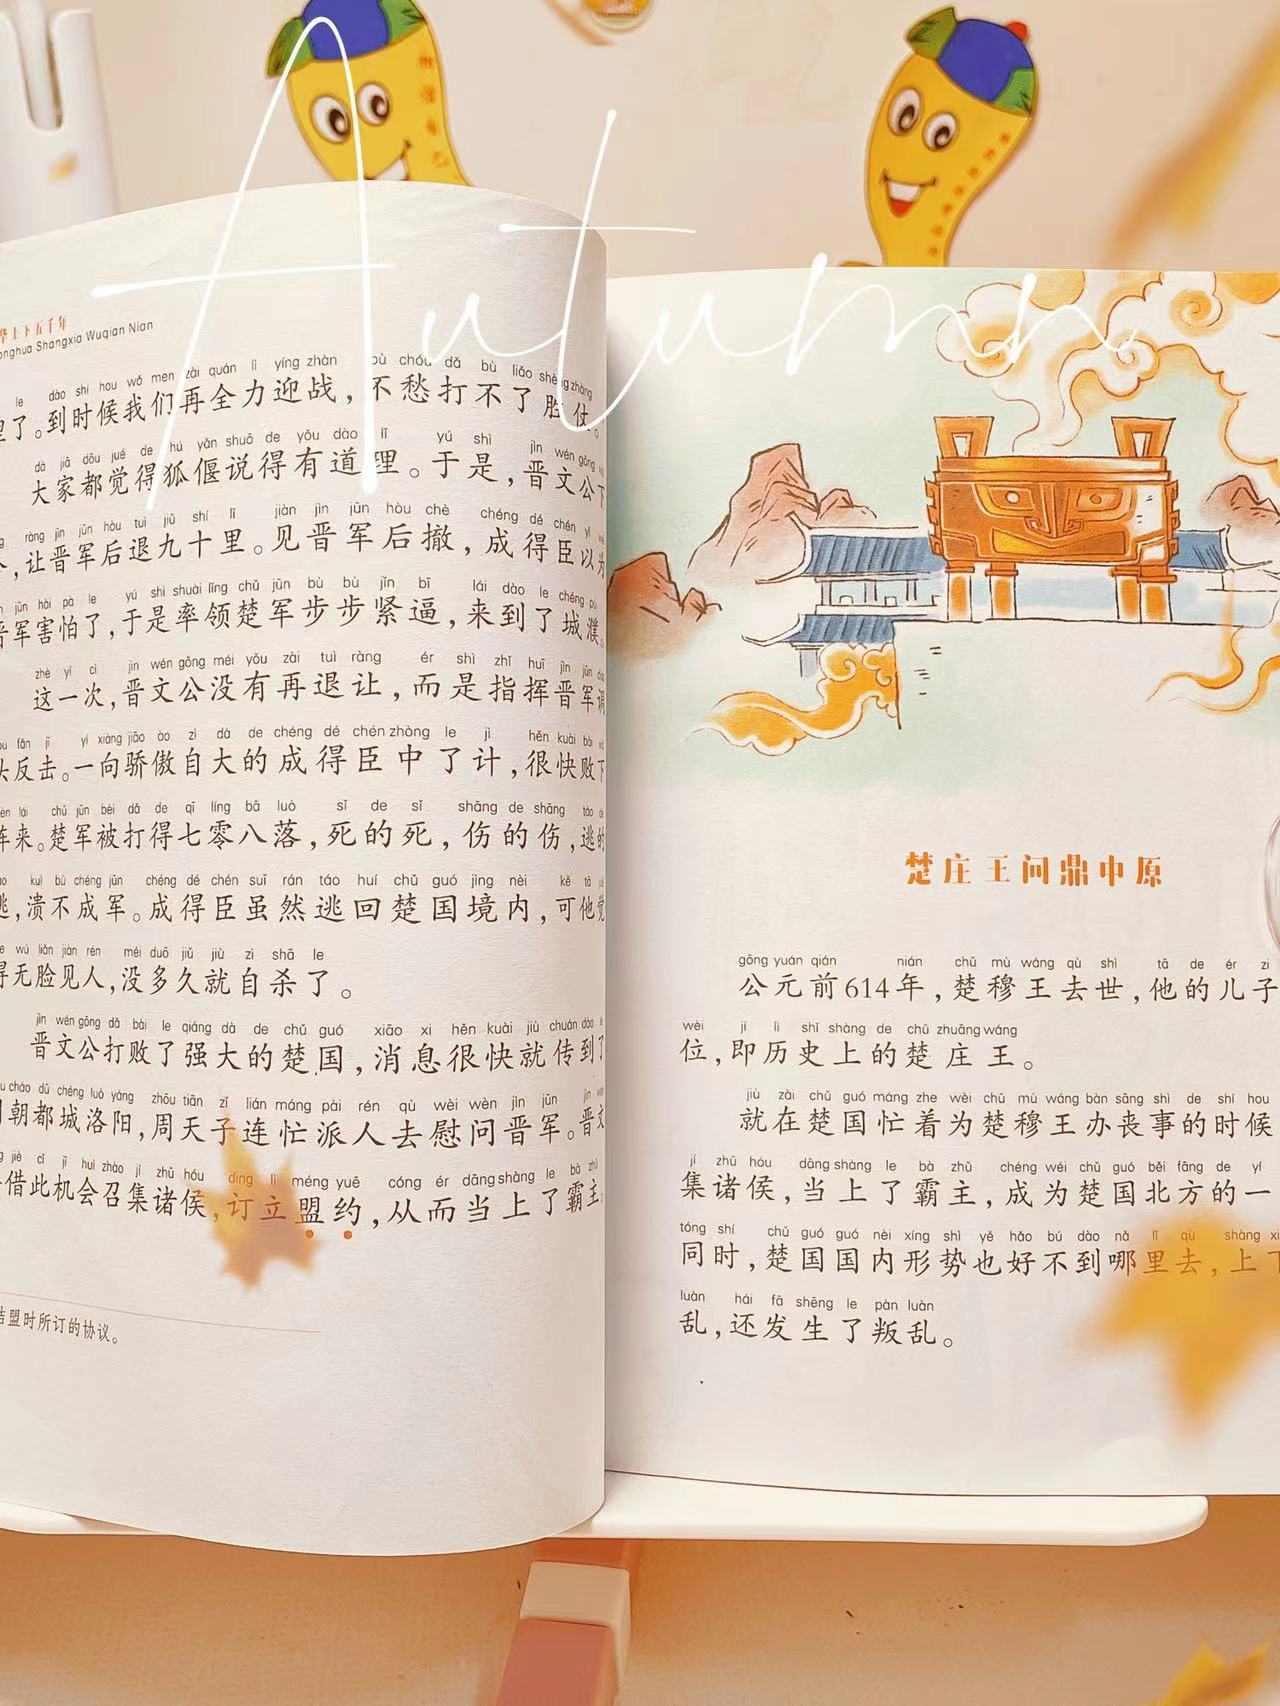 Autumn
上下五千年
onghua Shangxia Wuqian Nian
le dào shí hou wǒ men zài quán lì yíng zhàn bù chóu dǎ bù liǎo shèng zhàng
了。到时候我们再全力迎战，不愁打不了胜仗。
dà jiā dōu jué de hú yǎn shuō de yǒu dào lǐ yú shì jìn wén gōng
大家都觉得狐偃说得有道理。于是，晋文公下
ràng jìn jūn hòu tuì jiǔ shí lǐ jiàn jìn jūn hòu chè chéng dé chén yǐ
，让晋军后退九十里。见晋军后撤，成得臣以为
jūn hài pà le yú shì shuài lǐng chǔ jūn bù bù jǐn bī lái dào le chéng pú
晋军害怕了，于是率领楚军步步紧逼，来到了城濮。
zhè yí cì jìn wén gōng méi yǒu zài tuì ràng ér shì zhǐ huī jìn jūn
这一次，晋文公没有再退让，而是指挥晋军调
fǎn jī yí xiàng jiāo ào zì dà de chéng dé chén zhòng le jì hěn kuài bài
头反击。一向骄傲自大的成得臣中了计，很快败下
lái chǔ jūn bèi dǎ de qī líng bā luò sǐ de sǐ shāng de shāng táo de
阵来。楚军被打得七零八落，死的死，伤的伤，逃的
kuì bù chéng jūn chéng dé chén suī rán táo huí chǔ guó jìng nèi kě tā
逃，溃不成军。成得臣虽然逃回楚国境内，可他觉
wú liǎn jiàn rén méi duō jiǔ jiù zì shā le
得无脸见人，没多久就自杀了。
jìn wén gōng dǎ bài le qiáng dà de chǔ guó xiāo xi hěn kuài jiù chuán dào le
晋文公打败了强大的楚国，消息很快就传到了
cháo dū chéng luò yáng zhōu tiān zǐ lián máng pài rén qù wèi wèn jìn jūn jìn
朝都城洛阳，周天子连忙派人去慰问晋军。晋文
jiè cǐ jī huì zhào jí zhū hóu dìng lì méng yuē cóng ér dāng shàng le bà zhǔ
借此机会召集诸侯，订立盟约，从而当上了霸主。
结盟时所订的协议。
楚庄王问鼎中原
gōng yuán qián nián chǔ mù wáng qù shì tā de ér zi
公元前614年，楚穆王去世，他的儿子
wèi jí lì shǐ shàng de chǔ zhuāng wáng
位，即历史上的楚庄王。
jiù zài chǔ guó máng zhe wèi chǔ mù wáng bàn sāng shì de shí hou
就在楚国忙着为楚穆王办丧事的时候
jí zhū hóu dāng shàng le bà zhǔ chéng wéi chǔ guó běi fāng de yí
集诸侯，当上了霸主，成为楚国北方的一
tóng shí chǔ guó guó nèi xíng shì yě hǎo bú dào nǎ lǐ qù shàng xi
同时，楚国国内形势也好不到哪里去，上下
luàn hái fā shēng le pàn luàn
乱，还发生了叛乱。